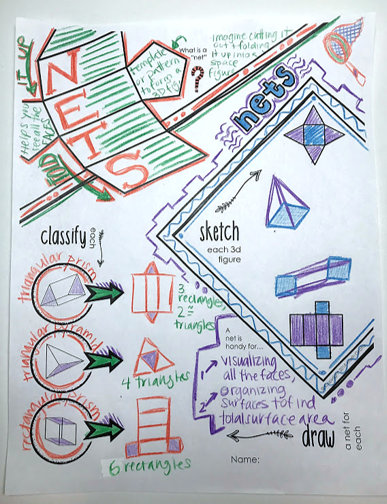 NETS
FOLD
IT UP
Helps you
see all the
FACES
What is a
"net"
?
template
or pattern
to form a
3D fig
imagine cutting IT
out & folding
it up into a
space
figure
nets
classify
each
sketch
each 3d
figure
triangular prism
3
rectangles
2
triangles
triangular pyramid
4 triangles
rectangular prism
6 rectangles
A
net is
handy for...
1 visualizing
all the faces,
2 organizing
surfaces to find
total surface area
draw
a net for
each
Name: